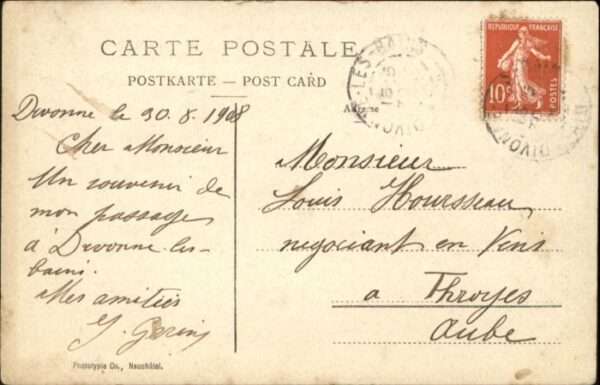 CARTE POSTALE
POSTKARTE — POST CARD
RÉPUBLIQUE FRANÇAISE
10c
POSTES
DIVONNE-LES-BAINS
Divonne le 30.8.1908
Cher Monsieur
Un souvenir de
mon passage
à Divonne-les-
bains.
Mes amitiés
Monsieur
Louis Hoursseau
négociant en Vins
a Throyes
Aube
Phototypie Co., Neuchâtel.